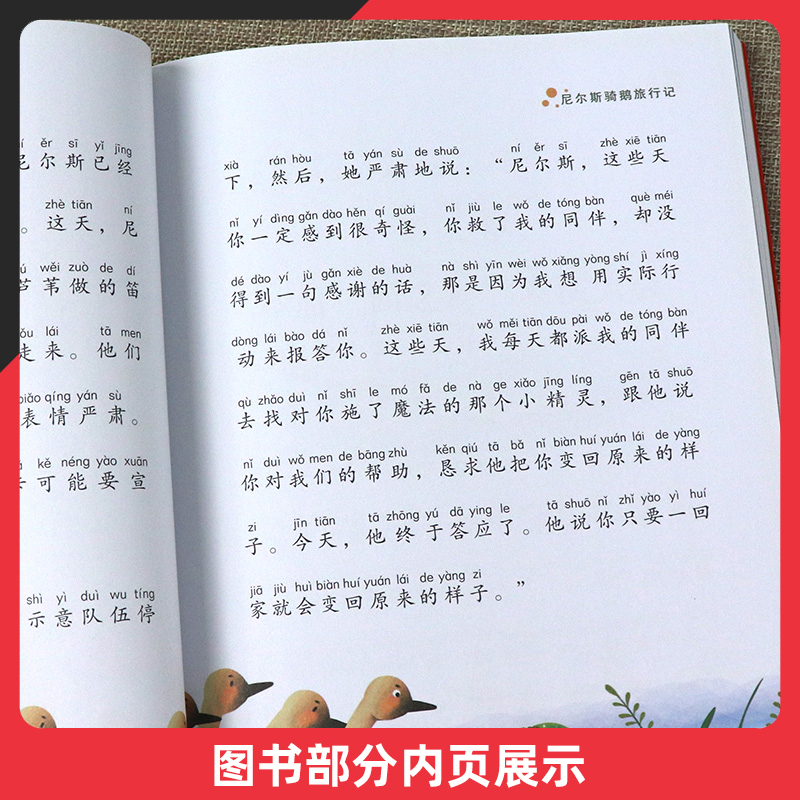 ěr sī yǐ jīng
尔斯已经
zhè tiān, ní
。这天，尼
wěi zuò de dí
芦苇做的笛
lái tā men
走来。他们
biǎo qíng yán sù
表情严肃。
kě néng yào xuān
可能要宣
shì yì duì wu tíng
示意队伍停
尼尔斯骑鹅旅行记
xià rán hòu tā yán sù de shuō ní ěr sī zhè xiē tiān
下，然后，她严肃地说：“尼尔斯，这些天
nǐ yí dìng gǎn dào hěn qí guài nǐ jiù le wǒ de tóng bàn què méi
你一定感到很奇怪，你救了我的同伴，却没
dé dào yí jù gǎn xiè de huà nà shì yīn wèi wǒ xiǎng yòng shí jì xíng
得到一句感谢的话，那是因为我想 用实际行
dòng lái bào dá nǐ zhè xiē tiān wǒ měi tiān dōu pài wǒ de tóng bàn
动来报答你。这些天，我每天都派我的同伴
qù zhǎo duì nǐ shī le mó fǎ de nà ge xiǎo jīng líng gēn tā shuō
去找对你施了魔法的那个小精灵，跟他说
nǐ duì wǒ men de bāng zhù kěn qiú tā bǎ nǐ biàn huí yuán lái de yàng
你对我们的帮助，恳求他把你变回原来的样
zi jīn tiān tā zhōng yú dā ying le tā shuō nǐ zhǐ yào yì huí
子。今天，他终于答应了。他说你只要一回
jiā jiù huì biàn huí yuán lái de yàng zi
家就会变回原来的样子。”
图书部分内页展示